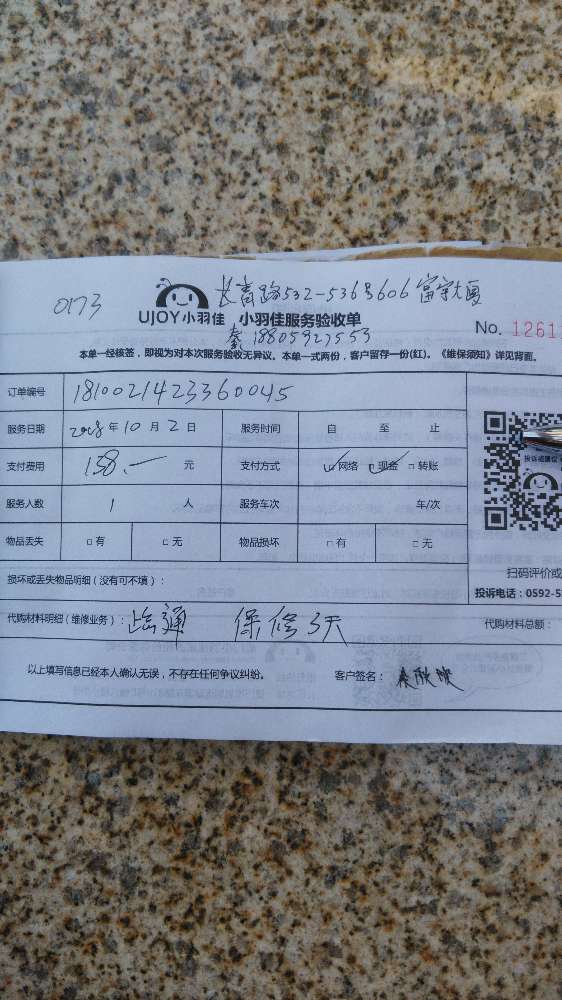 0173
长青路532-536号606富宇大厦
UJOY小羽佳 小羽佳服务验收单
秦18805927553
No. 1261
本单一经核签，即视为对本次服务验收无异议。本单一式两份，客户留存一份(红)。《维保须知》详见背面。
订单编号 1810021423360045
服务日期 2018年10月2日 服务时间 自 至 止
支付费用 158.一 元 支付方式 ☑网络 ☑现金 □转账
投诉或建议
服务人数 1 人 服务车次 车/次
物品丢失 □有 □无 物品损坏 □有 □无
扫码评价或
损坏或丢失物品明细(没有可不填)：
投诉电话：0592-5
代购材料明细(维修业务)： 疏通 保修3天 代购材料总额：
以上填写信息已经本人确认无误，不存在任何争议纠纷。 客户签名：